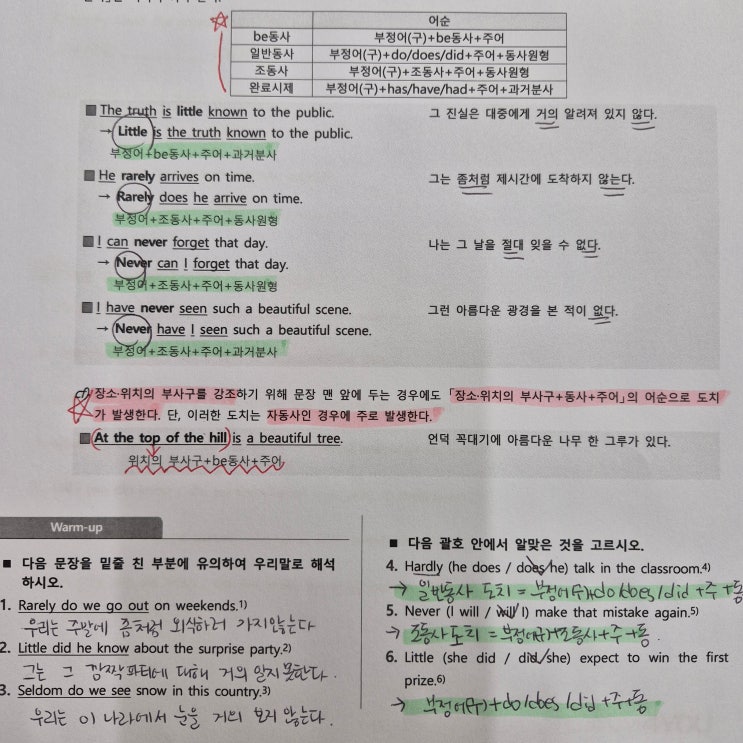 어순
be동사 부정어(구)+be동사+주어
일반동사 부정어(구)+do/does/did+주어+동사원형
조동사 부정어(구)+조동사+주어+동사원형
완료시제 부정어(구)+has/have/had+주어+과거분사
■ The truth is little known to the public. 그 진실은 대중에게 거의 알려져 있지 않다.
→ Little is the truth known to the public.
부정어+be동사+주어+과거분사
■ He rarely arrives on time. 그는 좀처럼 제시간에 도착하지 않는다.
→ Rarely does he arrive on time.
부정어+조동사+주어+동사원형
■ I can never forget that day. 나는 그 날을 절대 잊을 수 없다.
→ Never can I forget that day.
부정어+조동사+주어+동사원형
■ I have never seen such a beautiful scene. 그런 아름다운 광경을 본 적이 없다.
→ Never have I seen such a beautiful scene.
부정어+조동사+주어+과거분사
장소·위치의 부사구를 강조하기 위해 문장 맨 앞에 두는 경우에도 「장소·위치의 부사구+동사+주어」의 어순으로 도치
가 발생한다. 단, 이러한 도치는 자동사인 경우에 주로 발생한다.
■ At the top of the hill is a beautiful tree. 언덕 꼭대기에 아름다운 나무 한 그루가 있다.
위치의 부사구+be동사+주어
Warm-up
■ 다음 문장을 밑줄 친 부분에 유의하여 우리말로 해석
하시오.
1. Rarely do we go out on weekends.1)
우리는 주말에 좀처럼 외식하러 가지않는다
2. Little did he know about the surprise party.2)
그는 그 깜짝파티에 대해 거의 알지못한다.
3. Seldom do we see snow in this country.3)
우리는 이 나라에서 눈을 거의 보지 않는다.
■ 다음 괄호 안에서 알맞은 것을 고르시오.
4. Hardly (he does / does he) talk in the classroom.4)
→ 일반동사 도치 = 부정어(구)+do/does/did +주+동
5. Never (I will / will I) make that mistake again.5)
→ 조동사도치 = 부정어(구)+조동사+주+동.
6. Little (she did / did she) expect to win the first
prize.6)
→ 부정어(구)+do/does/did +주+동